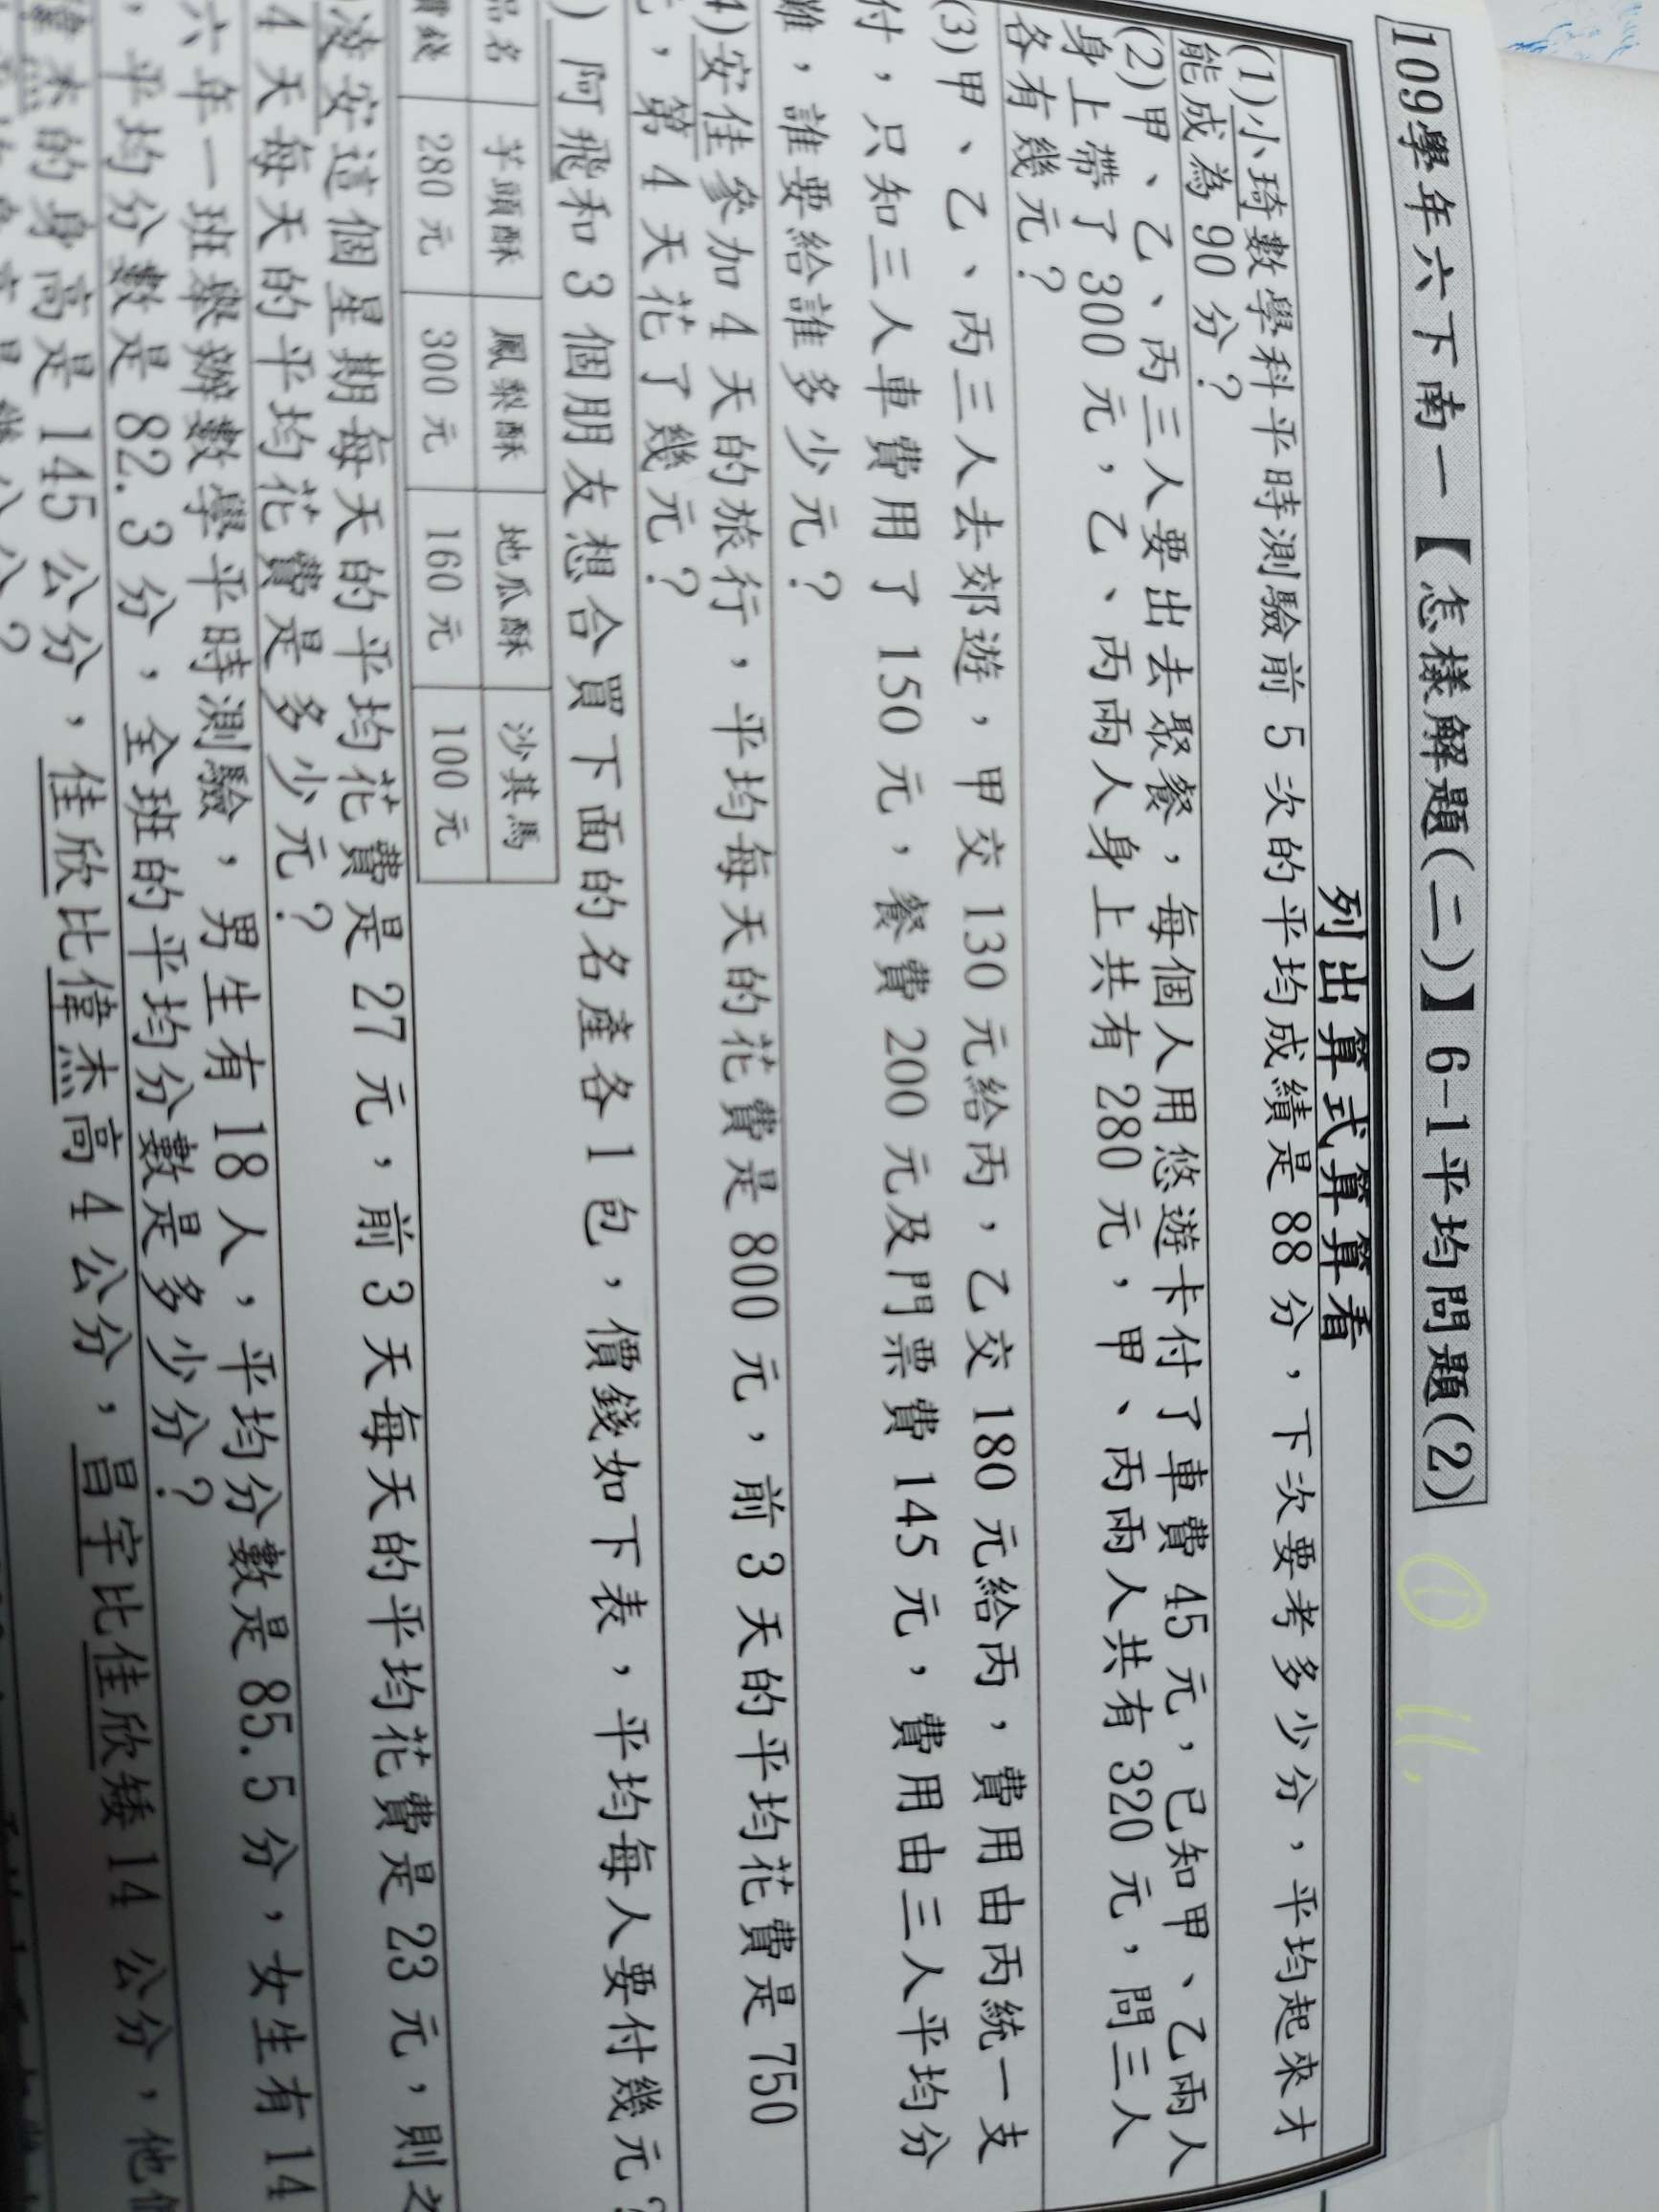 109學年六下南一【怎樣解題(二)】6-1平均問題(2)
① 11,
列出算式算算看
(1)小琦數學科平時測驗前 5 次的平均成績是 88 分，下次要考多少分，平均起來才
能成為 90 分？
(2)甲、乙、丙三人要出去聚餐，每個人用悠遊卡付了車費 45 元，已知甲、乙兩人
身上帶了 300 元，乙、丙兩人身上共有 280 元，甲、丙兩人共有 320 元，問三人
各有幾元？
(3)甲、乙、丙三人去郊遊，甲交 130 元給丙，乙交 180 元給丙，費用由丙統一支
付，只知三人車費用了 150 元，餐費 200 元及門票費 145 元，費用由三人平均分
攤，誰要給誰多少元？
4)安佳參加 4 天的旅行，平均每天的花費是 800 元，前 3 天的平均花費是 750
，第 4 天花了幾元？
) 阿飛和 3 個朋友想合買下面的名產各 1 包，價錢如下表，平均每人要付幾元？
品名 芋頭酥 鳳梨酥 地瓜酥 沙其馬
價錢 280 元 300 元 160 元 100 元
凌安這個星期每天的平均花費是 27 元，前 3 天每天的平均花費是 23 元，則之
4 天每天的平均花費是多少元？
六年一班舉辦數學平時測驗，男生有 18 人，平均分數是 85.5 分，女生有 14
，平均分數是 82.3 分，全班的平均分數是多少分？
偉杰的身高是 145 公分，佳欣比偉杰高 4 公分，昌宇比佳欣矮 14 公分，他